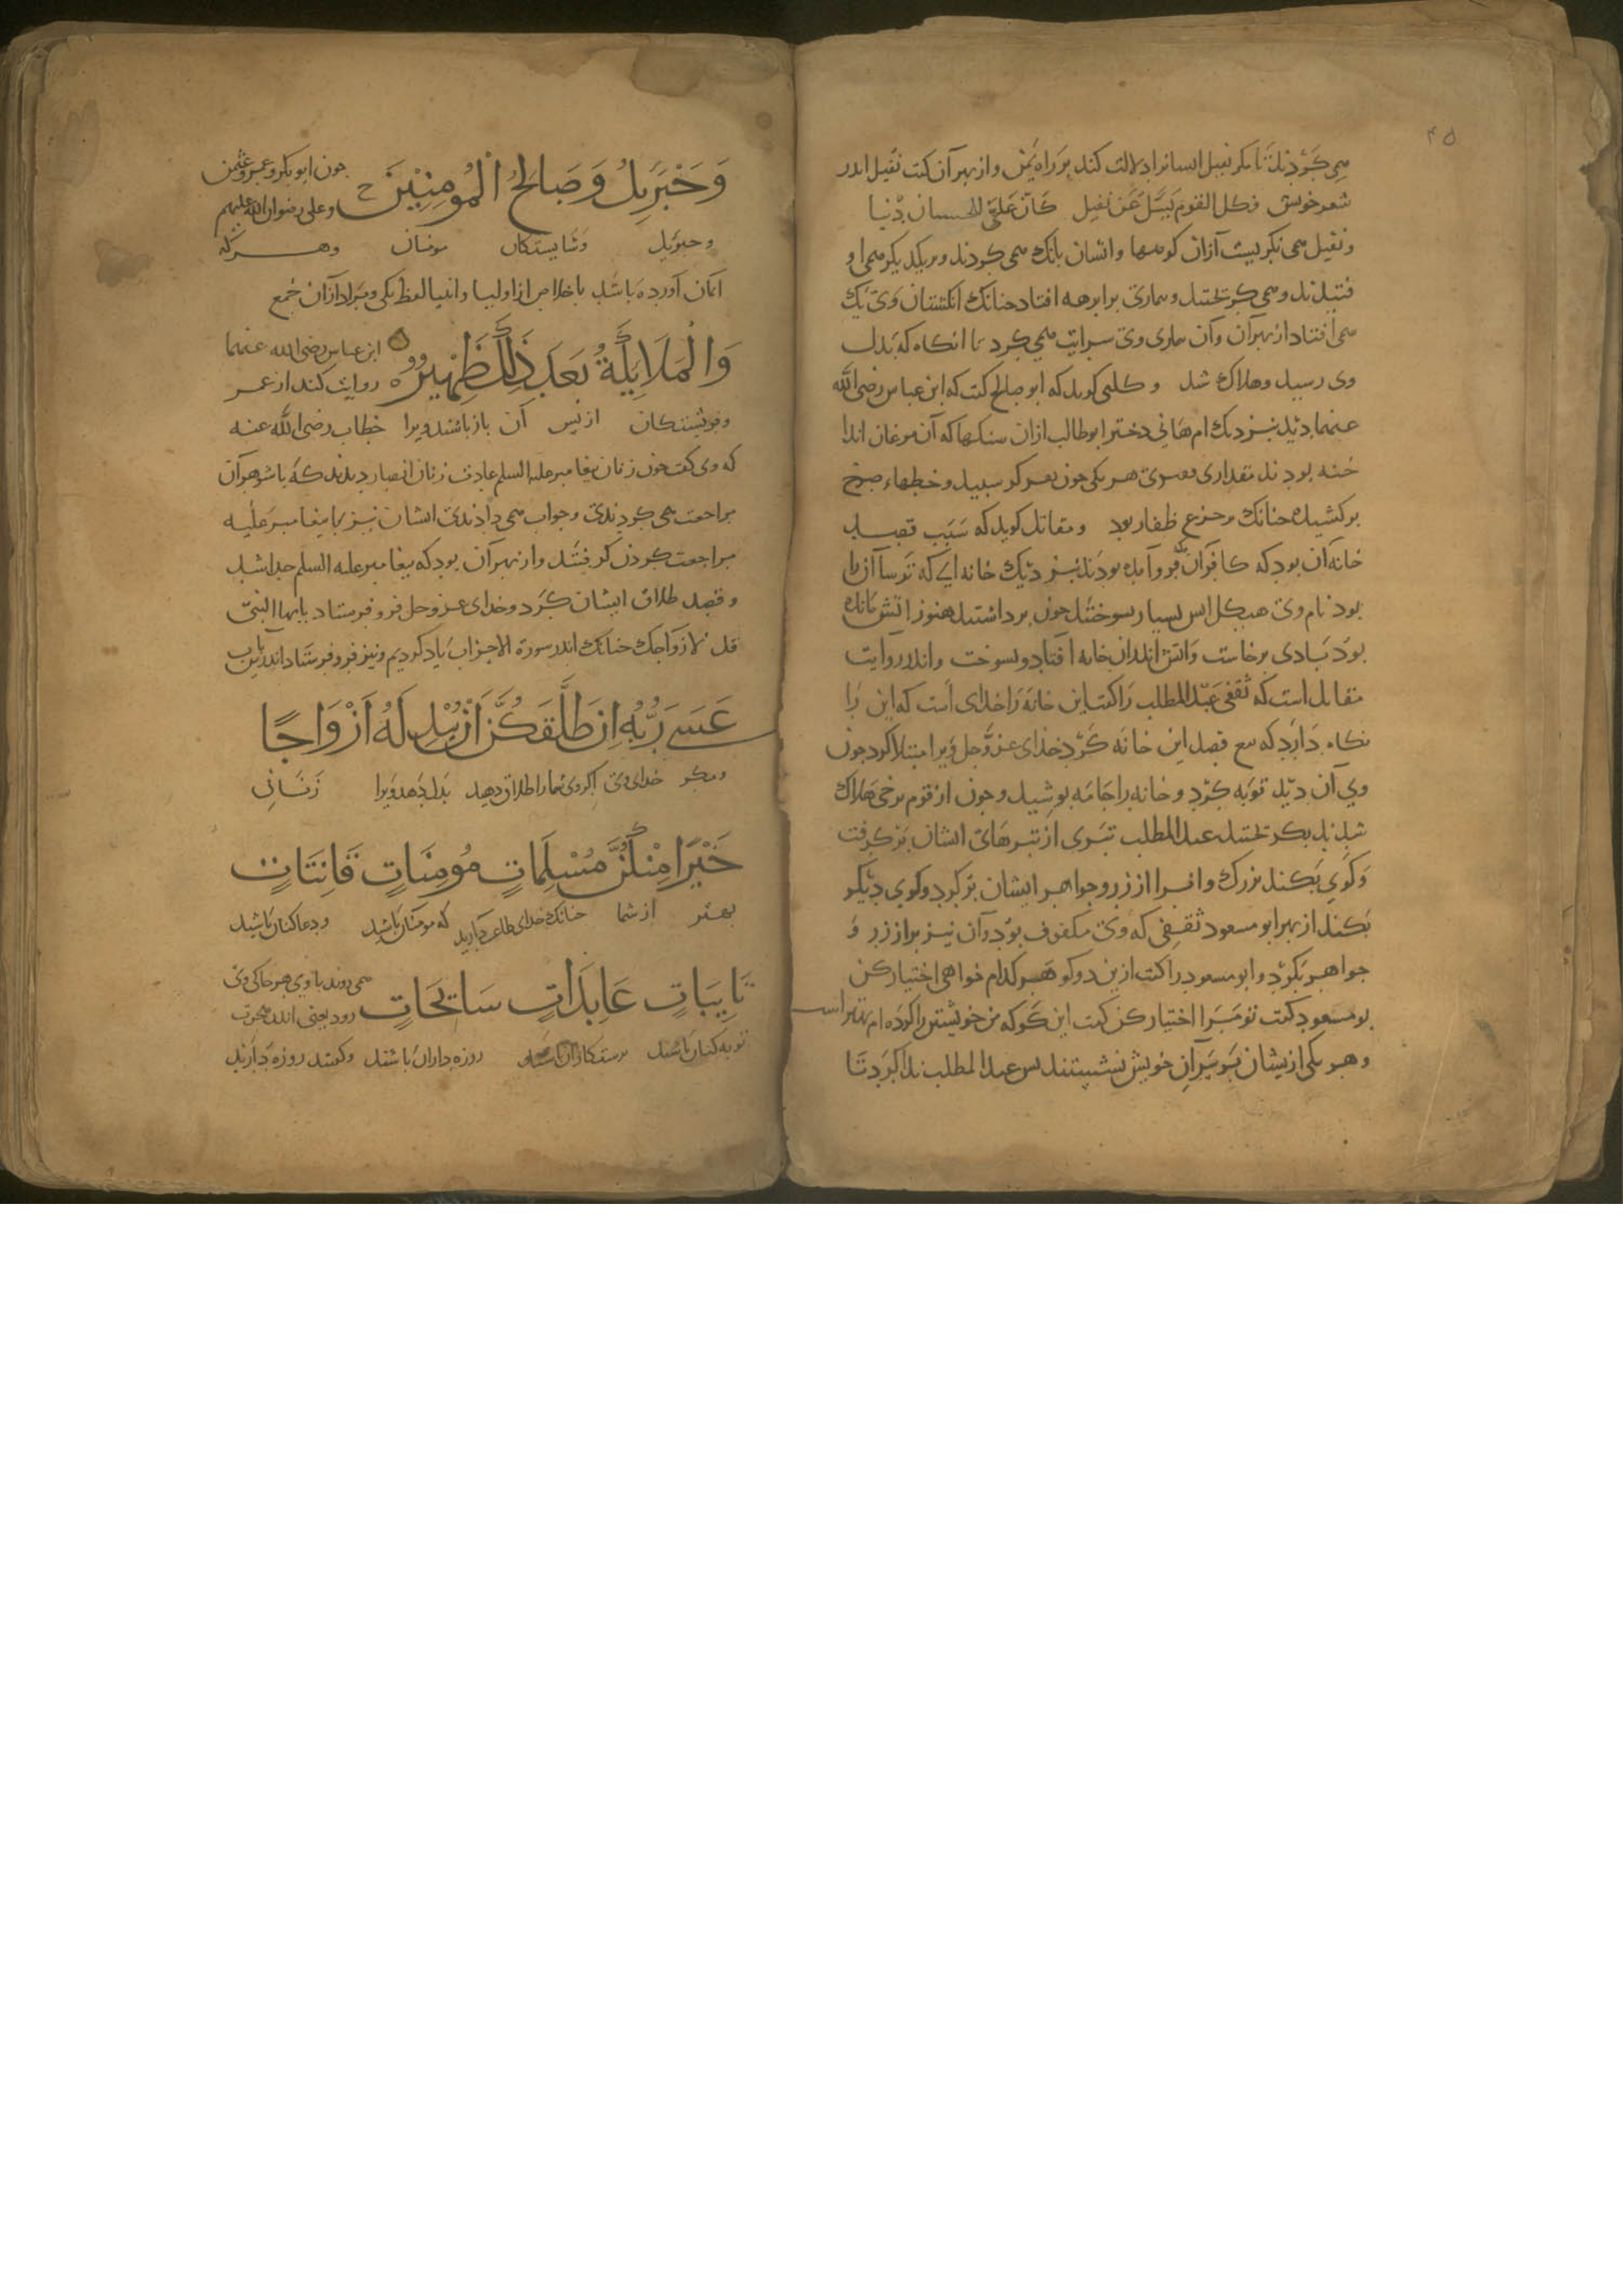 ۴۵
می کردند تا مکر نفیل ایسانرا دلالت کند بر راه یمن و از بهر آن کفت نفیل اندر
شعر خویش وکل القوم یسئل عن نفیل کان علی للحبسان دینا
و نفیل می نکریست آزان کوهها و ایشان بانک می کردند و بریکدیکر می او
فتیدند و می کریختند و بیماری بر ابرهه افتاد جنانک انکشتان وی یک
می افتاد از بهر آن و آن بیماری وی سرایت می کرد تا انکاه که بدل
وی رسید و هلاک شد و کلبی کوید که ابو صالح کفت که ابن عباس رضی الله
عنهما دید نزدیک ام هانی دختر ابو طالب ازان سنکها که آن مرغان اندا
خته بودند مقداری هر یکی جون بعر کوسبید و خطهاء سرخ
برکشیده جنانک بر جزع ظفار بود و مقاتل کوید که سبب قصد
خانه آن بود که کافران فرو آمده بودند نزدیک خانه ایی که ترساآن را
بود نام وی هیکل ایس بسیار سوختند جون برداشتند هنوز اتش مانده
بود بادی برخاست و اتش اندران خانه افتاد و بسوخت و اندر روایت
مقاتل است که ثقفی عبد المطلب را کفت این خانه را خدای است که این را
نکاه دارد که تبع قصد این خانه کرد خدای عز و جل ویرا مبتلا کرد جون
وی آن دید توبه کرد و خانه را جامه بوشید و جون از قوم برخی هلاک
شدند بکریختند عبد المطلب تبری از تبرهای ایشان برکرفت
و کوی بکند بزرک و انرا از زر و جواهر ایشان بر کرد و کوی دیکر
بکند از بهر ابو مسعود ثقفی که وی مکفوف بود و آن نیز بر از زر و
جواهر بکرد و ابو مسعود را کفت ازین دو کو هر کدام خواهی اختیار کن
بو مسعود کفت تو مرا اختیار کن کفت این کو که من خویشتن را کرده ام بهتر است
و هر یکی ازیشان بر سر آن خویش نشستند بس عبد المطلب ندا کرد تا
وَجِبْرِيلُ وَصَالِحُ الْمُومِنِينَ ج جون ابوبکر و عمر و عثمن
و علی رضوان الله علیهم
و جبرئیل و شایستکان مومنان و هرکه
ایمان آورده باشد باخلاص از اولیا و انبیا لفظ یکی و مراد آزان جمع
وَالْمَلَايِكَةُ بَعْدَ ذَلِكَ ظَهِيرٌ ابن عباس رضی الله عنهما
روایت کند از عمر
و فریشتکان از بس آن یار باشند ویرا خطاب رضی الله عنه
که وی کفت جون زنان بیغامبر علیه السلم عادت زنان انصار دیدند که باشوهرآن
مراجعت می کردندی و جواب می دادندی ایشان نیز با بیغامبر علیه
مراجعت کردن کرفتند و از بهر آن بود که بیغامبر علیه السلم جدا شد
و قصد طلاق ایشان کرد و خدای عز و جل فرو فرستاد یایها النبی
قل لازواجک جنانک اندر سورة الاحزاب یاد کردیم و نیز فرو فرستاد اندرین باب
عَسَى رَبُّهُ اِن طَلَّقَكُنَّ اَنْ يُبْدِلَهُ اَزْوَاجًا
و مکر خدای وی اکر وی شما را طلاق دهد بدل دهد ویرا زنانی
خَيْرًا مِنْكُنَّ مُسْلِمَاتٍ مُومِنَاتٍ قَانِتَاتٍ
بهتر از شما جنانک خدای طاعت دارید که مومنان باشید و دعا کنان باشید
تَايِبَاتٍ عَابِدَاتٍ سَايِحَاتٍ می روند باوی هر جا کی وی
رود یعنی اندر هجرت
توبه کنان باشند برستکاران باشند روزه داران باشند و کفتند روزه دارند